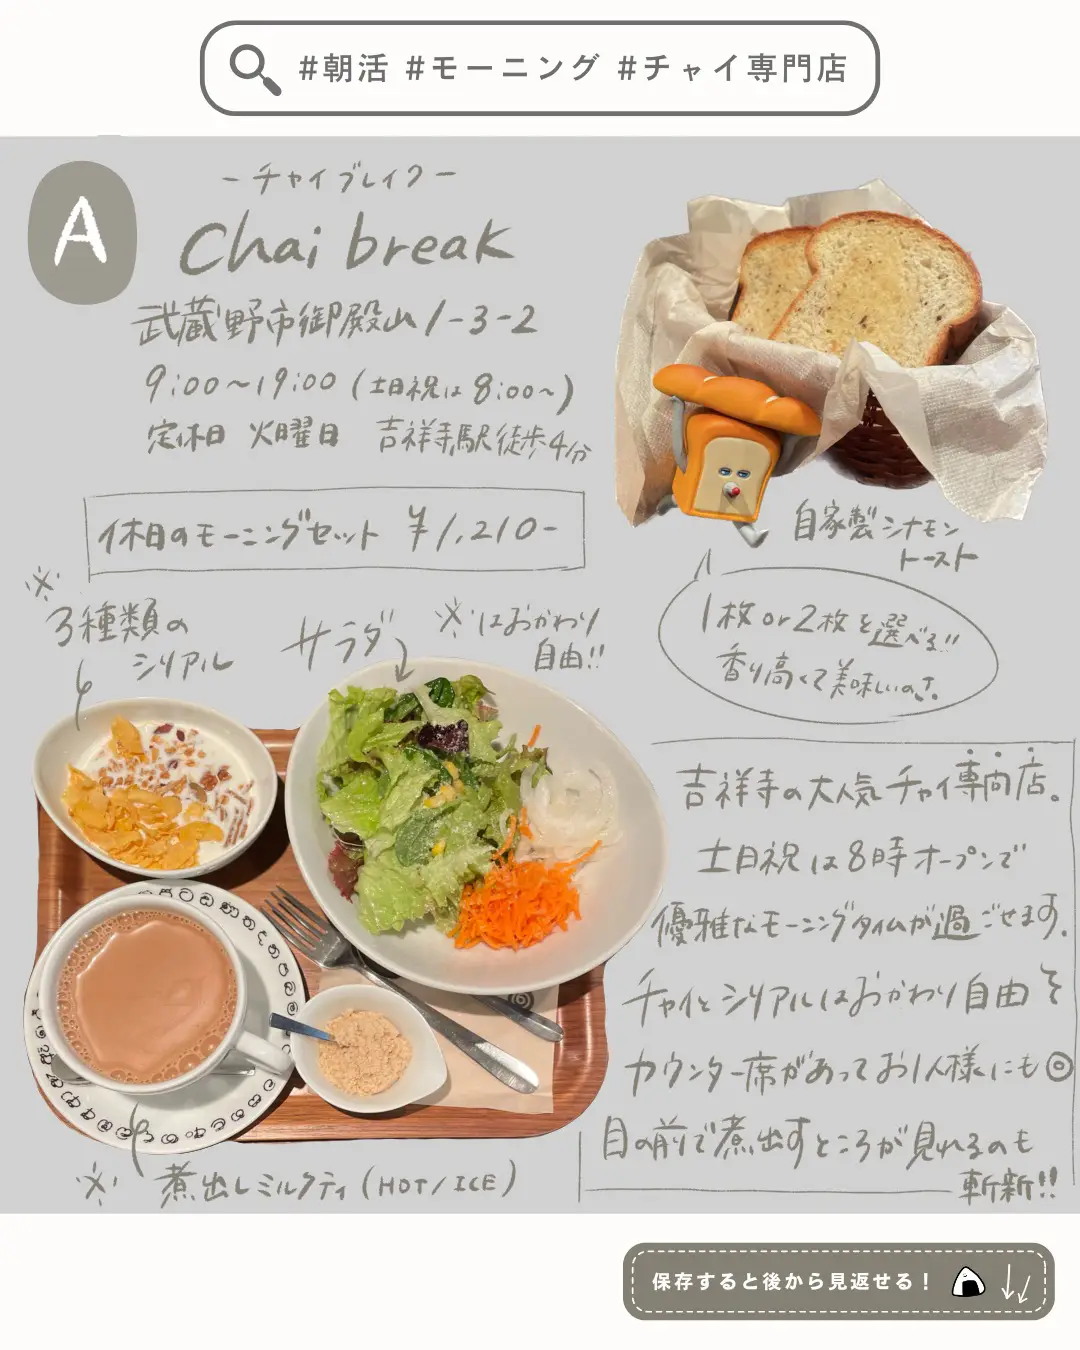 #朝活 #モーニング #チャイ専門店
A
-チャイブレイク-
Chai break
武蔵野市御殿山1-3-2
9:00~19:00 (土日祝は8:00~)
定休日 火曜日 吉祥寺駅徒歩4分
休日のモーニングセット ¥1,210-
※
3種類の
シリアル
サラダ
※はおかわり
自由!!
自家製シナモン
トースト
1枚or2枚を選べる!!
香り高くて美味しいのさ。
吉祥寺の大人気チャイ専門店。
土日祝は8時オープンで
優雅なモーニングタイムが過ごせます。
チャイとシリアルはおかわり自由そ
カウンター席があってお1人様にも◎
目の前で煮出すところが見れるのも
斬新!!
※ 煮出しミルクティ(HOT/ICE)
保存すると後から見返せる!